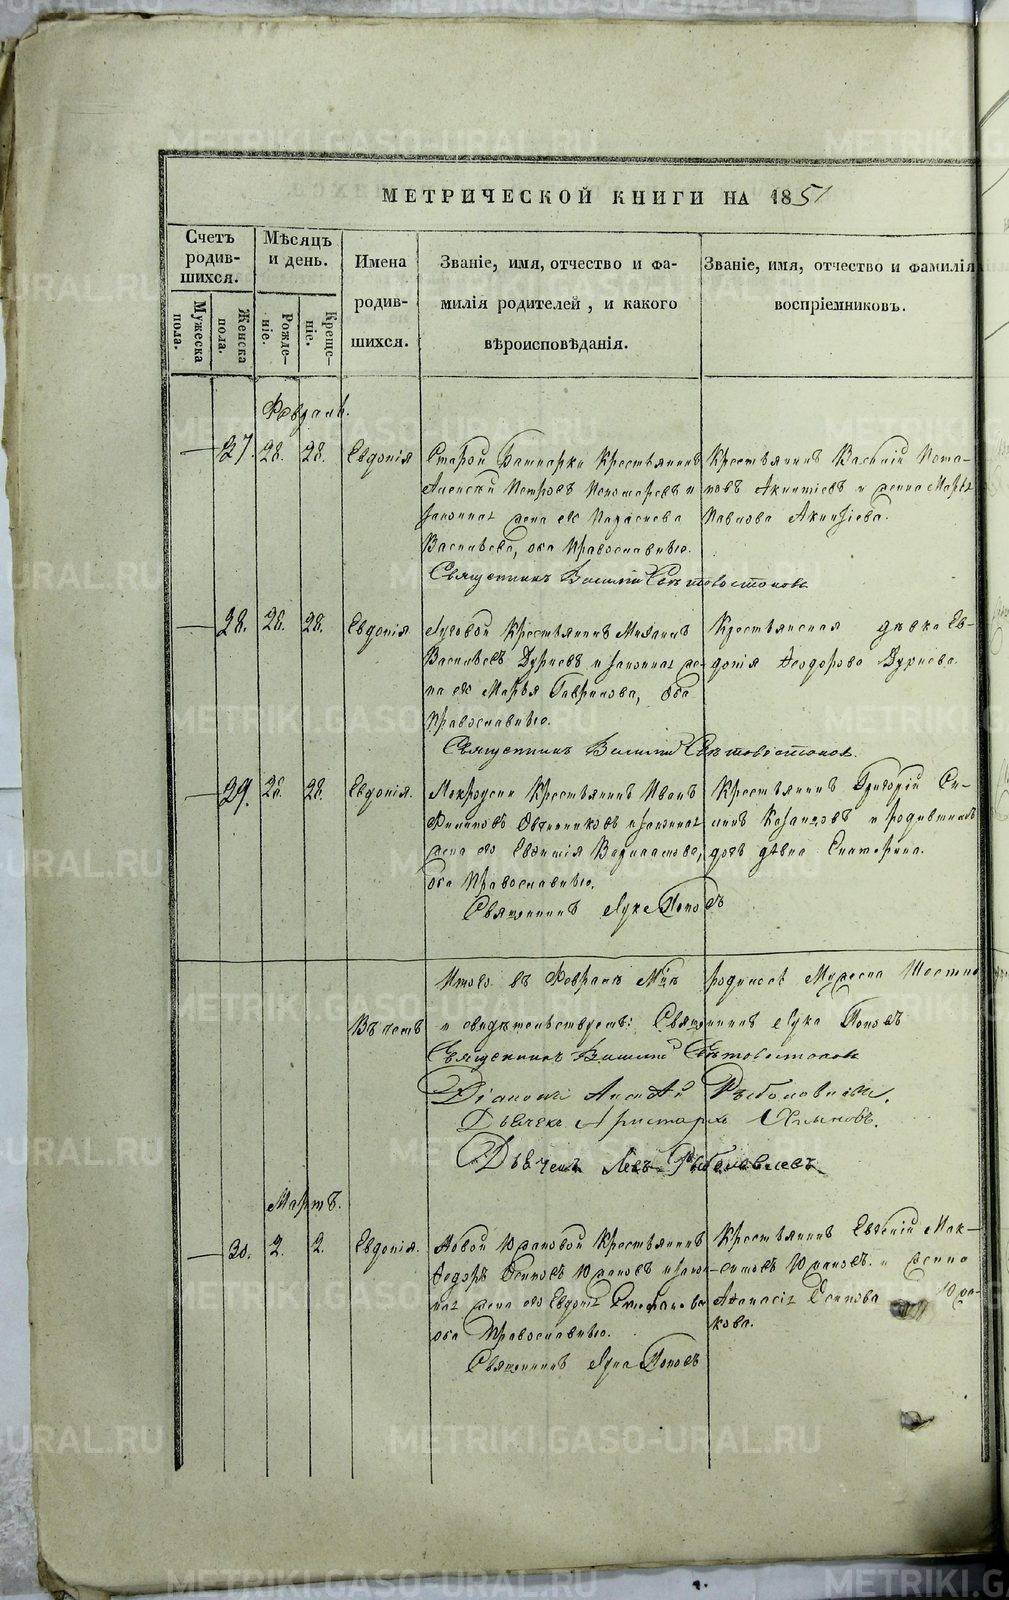 МЕТРИЧЕСКОЙ КНИГИ НА 1851
Счетъ родив-шихся.
Мужеска пола.
Женска пола.
Мѣсяцъ и день.
Рожде-ніе.
Креще-ніе.
Имена родив-шихся.
Званіе, имя, отчество и фа-
милія родителей, и какого
вѣроисповѣданія.
Званіе, имя, отчество и фамилія
воспріемниковъ.
Февраль.
27. 28. 28. Евдокія
Крестьянинъ
Алексѣй Петровъ Пономаревъ и
законная жена его Параскева
Васильева, оба Православные.
Священникъ Василій Свѣтовостоковъ
Крестьянинъ Василій Пота-
повъ и жена Марья
Павлова
28. 28. 28. Евдокія
Луговой Крестьянинъ Михаилъ
Васильевъ Дурневъ и законная же-
на его Марья Гаврилова, оба
Православные.
Священникъ Василій Свѣтовостоковъ.
Крестьянская дѣвка Ев-
докія Ѳеодорова Дурнева.
29. 28. 28. Евдокія.
Мокроуски Крестьянинъ Иванъ
Филиповъ Овчинниковъ и законная
жена его Евѳимія
оба Православные.
Священникъ Лука Поповъ
Крестьянинъ Григорій Си-
Казанцовъ и
дочь дѣвка Екатерина.
Итого въ Февралѣ М-цѣ родилось Мужеска Шестна
Въ чемъ и свидѣтельствуемъ: Священникъ Лука Поповъ
Священникъ Василій Свѣтовостоковъ
Діаконъ Рыболовлевъ.
Дьячекъ Аристархъ
Дьячекъ Левъ Рыболовлевъ
Мартъ.
30. 2. 2. Евдокія.
Новой Юлаковой Крестьянинъ
Ѳедоръ Осиповъ и закон-
ная жена его Евдокія
оба Православные.
Священникъ Лука Поповъ
Крестьянинъ Евгеній Мак-
симовъ и жена
Аѳанасія Осипова
кова.
METRIKI.GASO-URAL.RU